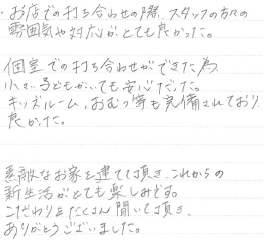 ・お店での打ち合わせの際、スタッフの方々の
雰囲気や対応がとても良かった。
個室での打ち合わせができた為
小さい子どもがいても安心だった。
キッズルーム、おむつ等も完備されており
良かった。
素敵なお家を建てて頂き、これからの
新生活がとても楽しみです。
こだわりをたくさん聞いて頂き、
ありがとうございました。